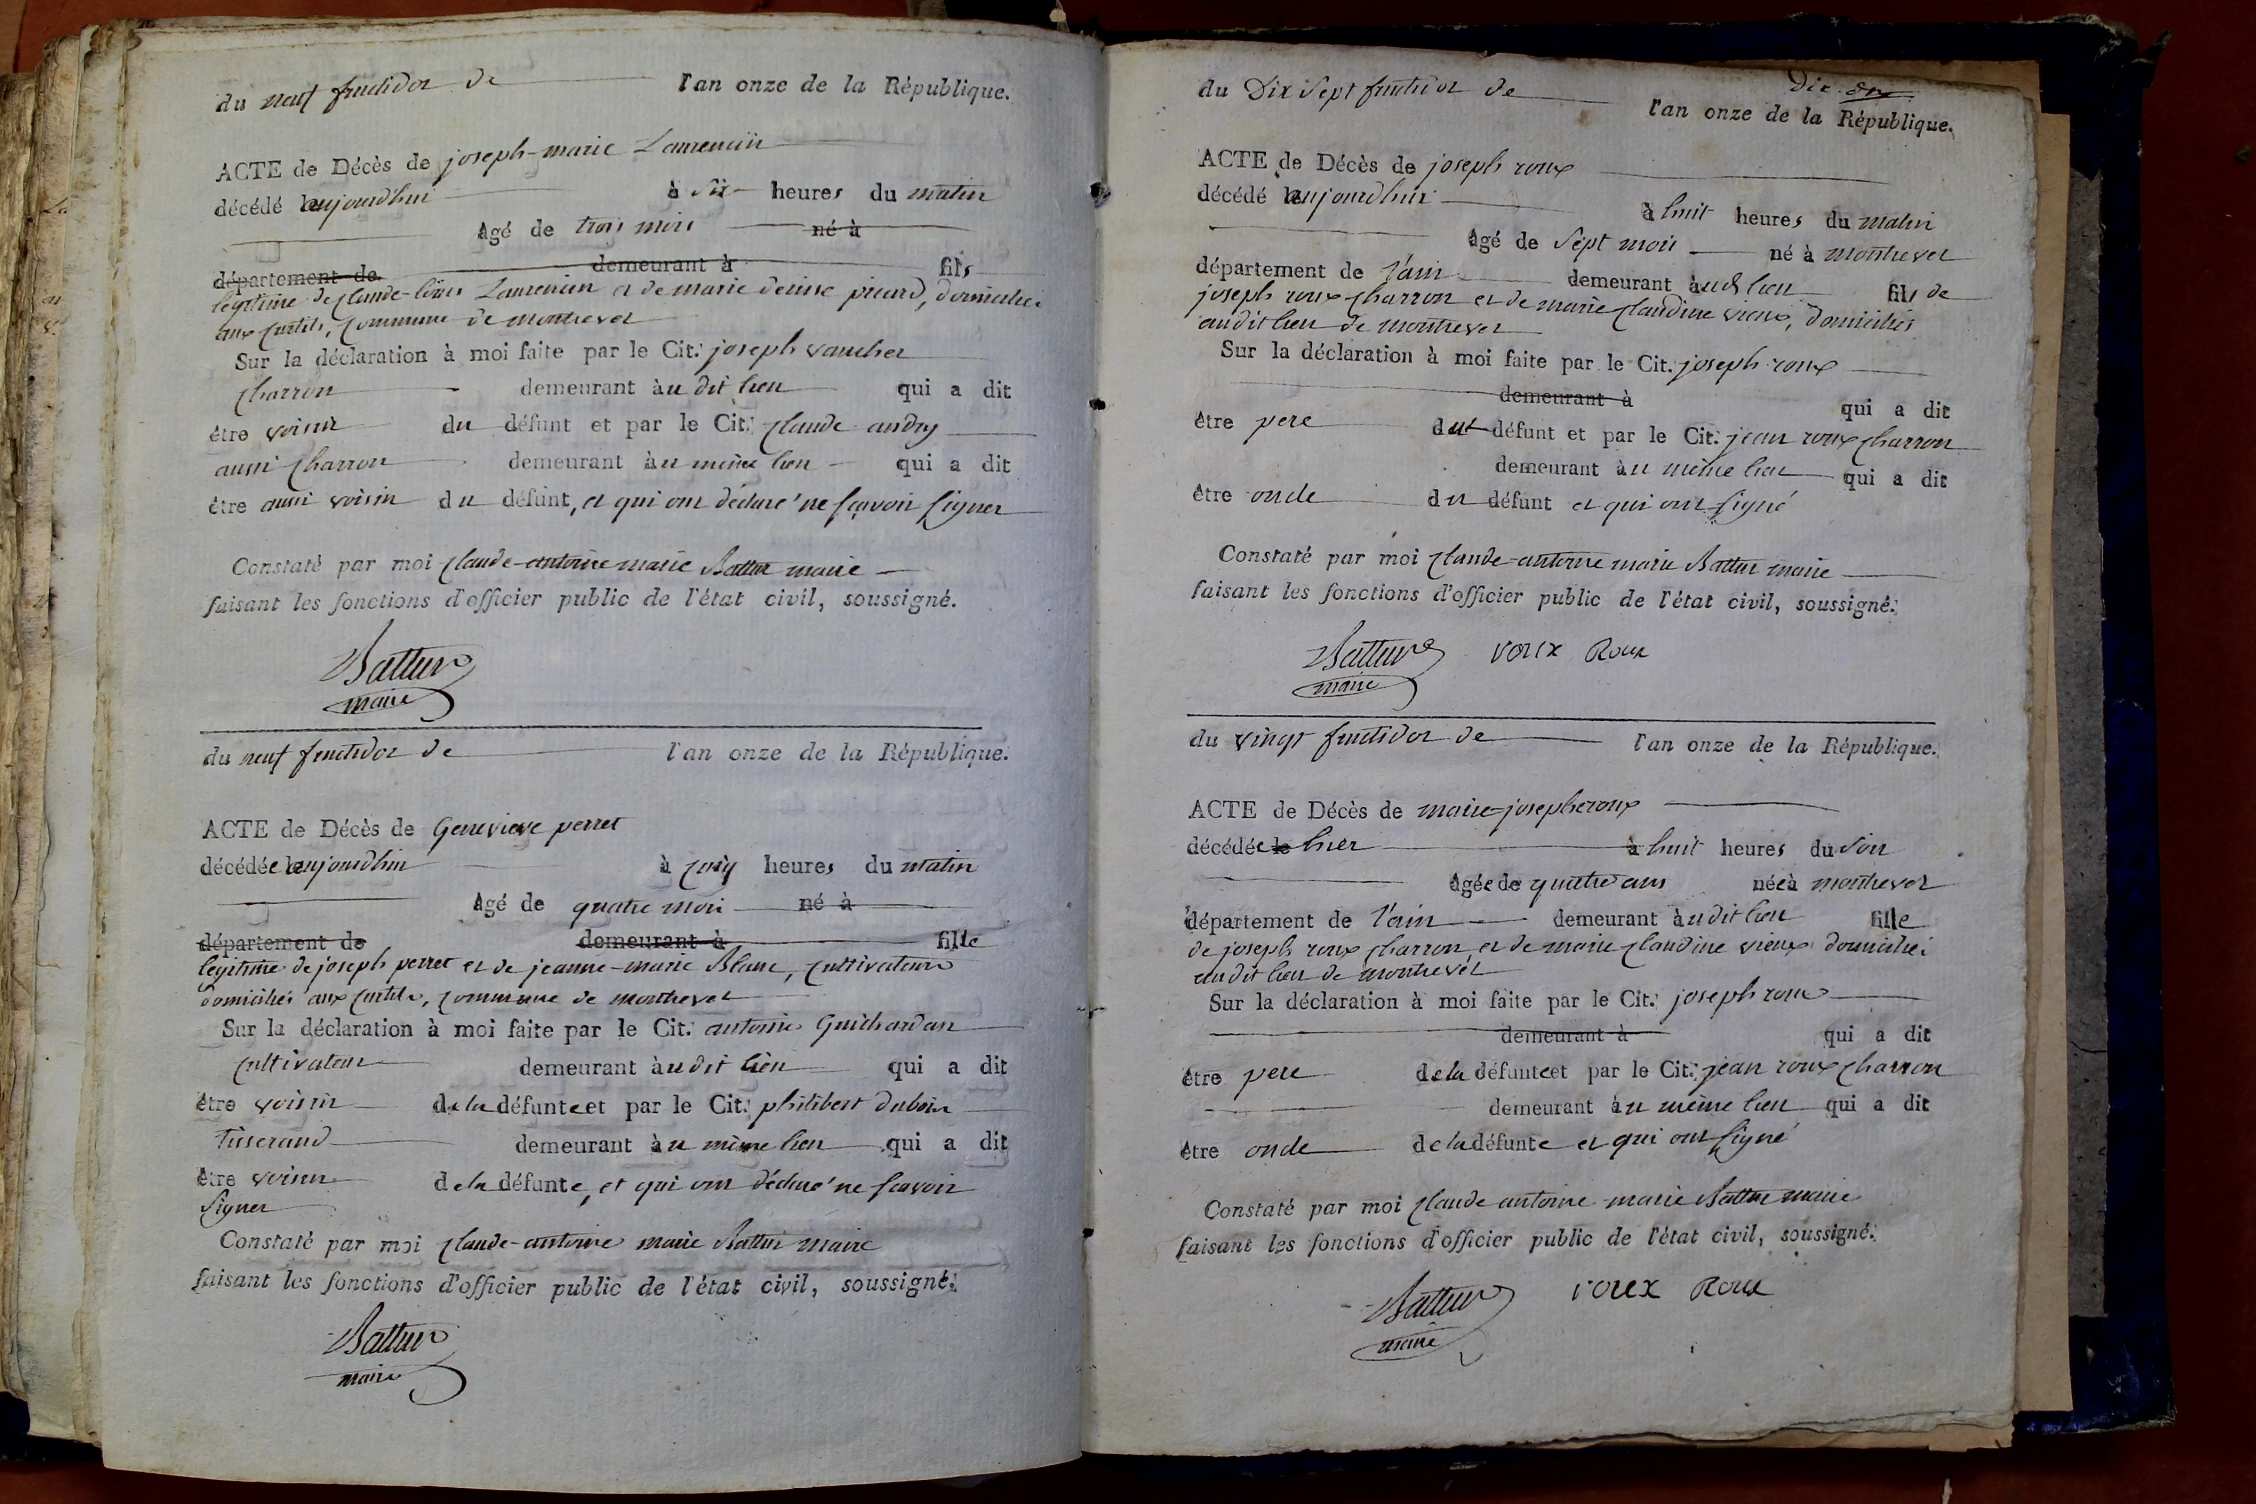 du neuf fructidor de l'an onze de la République.
ACTE de Décès de joseph-marie Laurencin
décédé aujourdhui à six heures du matin
âgé de trois mois né à
département de demeurant à fils
legitime de Claude-louis Laurencin et de marie denise picard, domiciliés
aux Curtils, Commune de montrevel
Sur la déclaration à moi faite par le Cit. joseph vaucher
Charron demeurant àu dit lieu qui a dit
être voisin du défunt et par le Cit. Claude andry
aussi Charron demeurant àu même lieu qui a dit
être aussi voisin du défunt, et qui ont déclaré ne sçavoir signer
Constaté par moi Claude-antoine marie Battur maire
faisant les fonctions d'officier public de l'état civil, soussigné.
Battur
maire
du neuf fructidor de l'an onze de la République.
ACTE de Décès de Genevieve perret
décédée aujourdhui à Cinq heures du matin
âgé de quatre mois né à
département de demeurant à fille
legitime de joseph perret et de jeanne-marie Blanc, Cultivateurs
domiciliés aux Curtils, Commune de montrevel
Sur la déclaration à moi faite par le Cit. antoine Guichardan
Cultivateur demeurant àu dit lieu qui a dit
être voisin de la défunte et par le Cit. philibert dubois
Tisserand demeurant àu même lieu qui a dit
être voisin de la défunte, et qui ont déclaré ne sçavoir
signer
Constaté par moi Claude-antoine marie Battur maire
faisant les fonctions d'officier public de l'état civil, soussigné.
Battur
maire
Dix
du Dix Sept fructidor de l'an onze de la République.
ACTE de Décès de joseph roux
décédé aujourdhui à huit heures du matin
âgé de Sept mois né à montrevel
département de l'ain demeurant àud. lieu fils de
joseph roux Charron et de marie Claudine vieux, domiciliés
audit lieu de montrevel
Sur la déclaration à moi faite par le Cit. joseph roux
demeurant à qui a dit
être pere dut défunt et par le Cit. jean roux Charron
demeurant àu même lieu qui a dit
être oncle du défunt et qui ont signé
Constaté par moi Claude-antoine marie Battur maire
faisant les fonctions d'officier public de l'état civil, soussigné.
Battur roux Roux
maire
du vingt fructidor de l'an onze de la République.
ACTE de Décès de marie-josephe roux
décédée le hier à huit heures du soir
âgée de quatre ans née à montrevel
département de l'ain demeurant àudit lieu fille
de joseph roux Charron et de marie Claudine vieux domiciliés
audit lieu de montrevel
Sur la déclaration à moi faite par le Cit. joseph roux
demeurant à qui a dit
être pere de la défunte et par le Cit. jean roux Charron
demeurant àu même lieu qui a dit
être oncle de la défunte et qui ont signé
Constaté par moi Claude antoine marie Battur maire
faisant les fonctions d'officier public de l'état civil, soussigné.
Battur roux Roux
maire